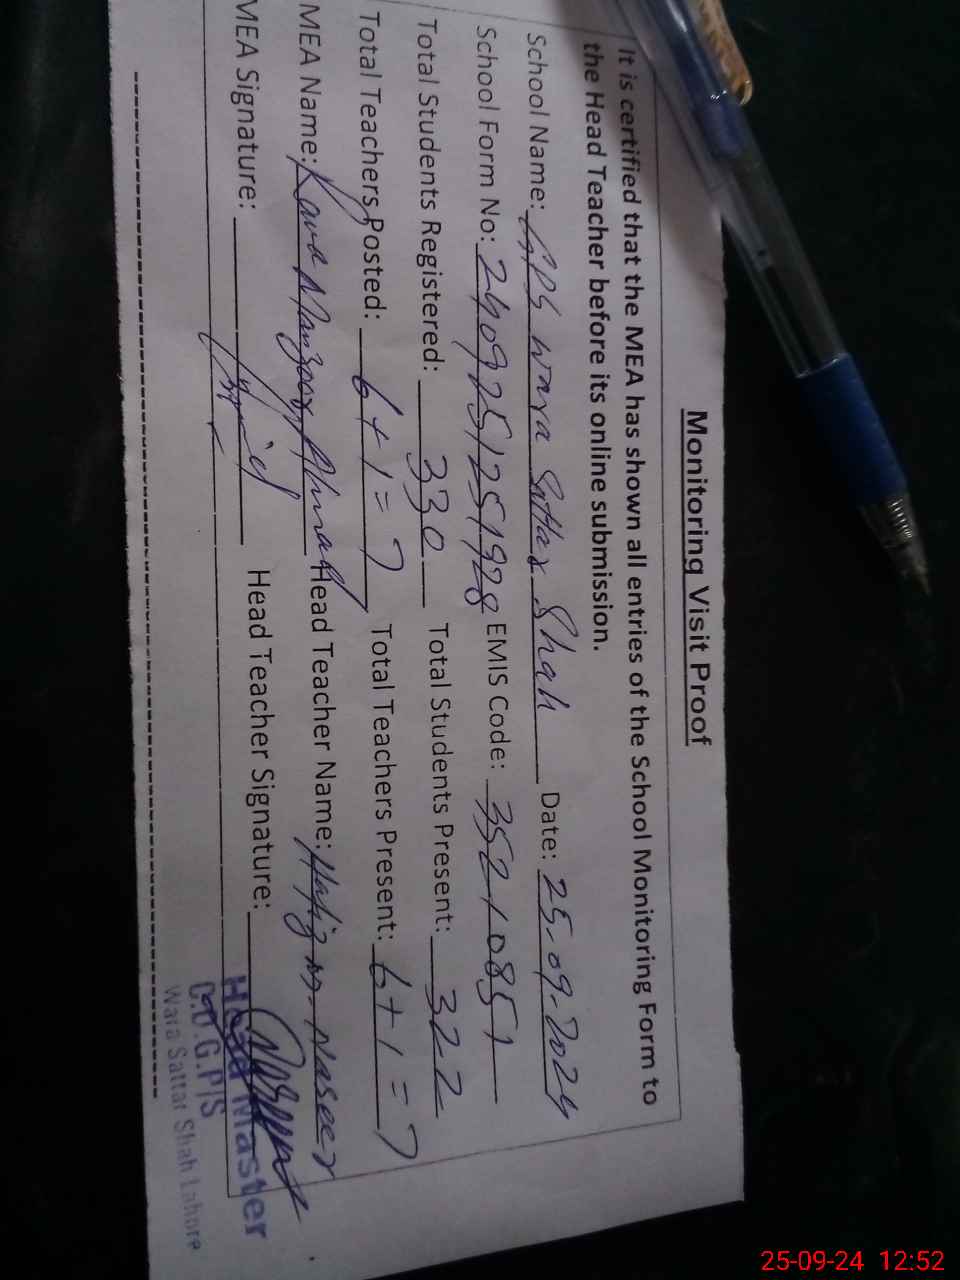 Monitoring Visit Proof
It is certified that the MEA has shown all entries of the School Monitoring Form to
the Head Teacher before its online submission.
School Name: GPS Wara Sattar Shah Date: 25-09-2024
School Form No: 2409251251928 EMIS Code: 35210851
Total Students Registered: 330 Total Students Present: 322
Total Teachers Posted: 6+1=7 Total Teachers Present: 6+1=7
MEA Name: Rana Manzoor Ahmad Head Teacher Name: Hafiz M. Naseer
MEA Signature: Head Teacher Signature:
Head Master
C.D.G.P/S
Wara Sattar Shah Lahore
25-09-24 12:52